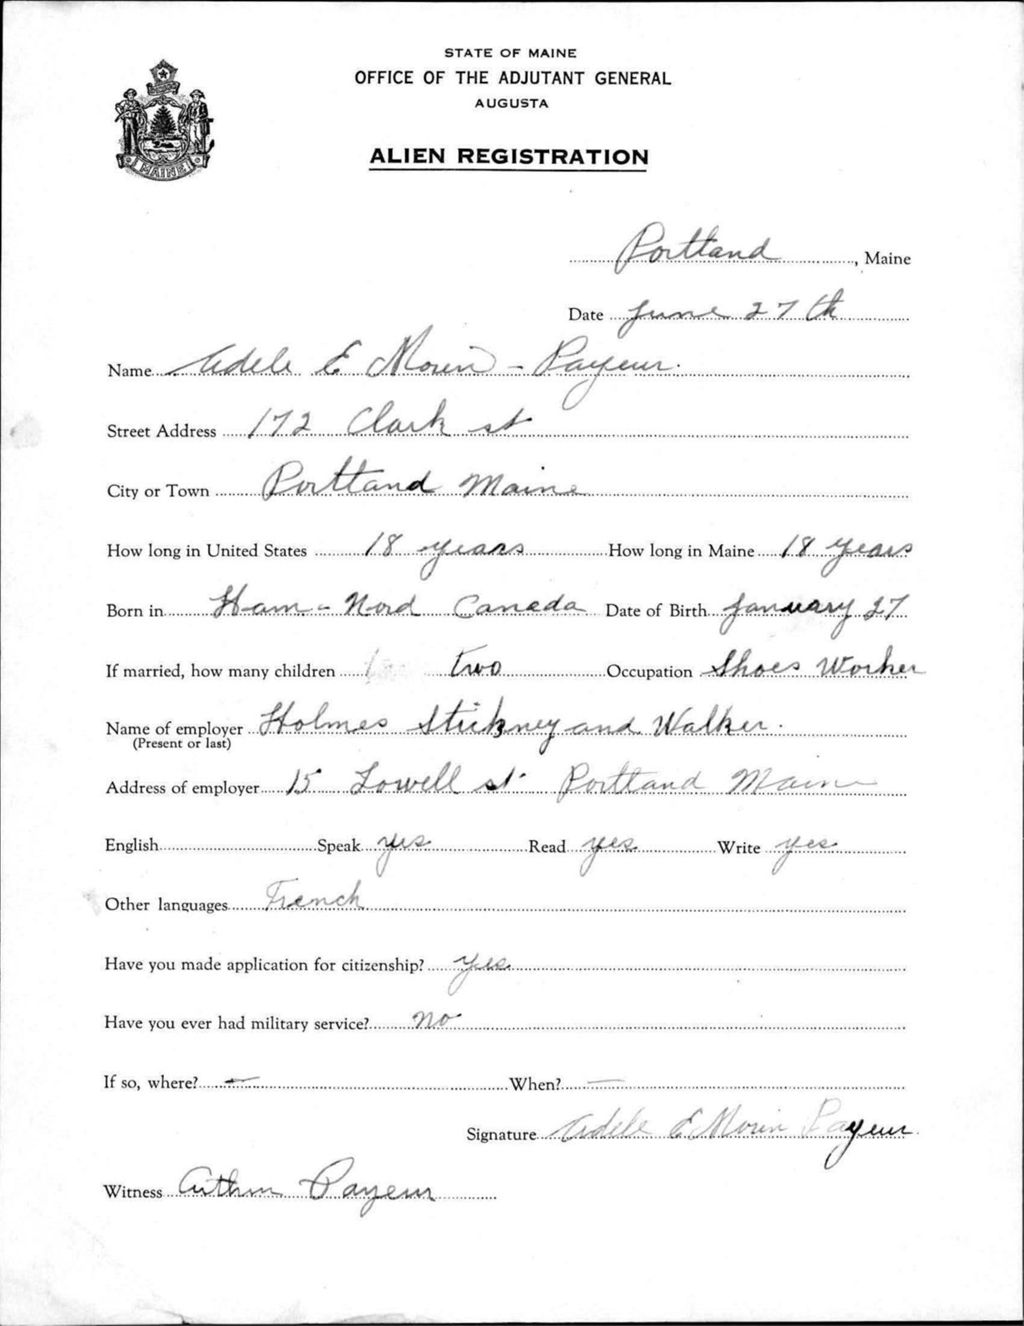 STATE OF MAINE
OFFICE OF THE ADJUTANT GENERAL
AUGUSTA
ALIEN REGISTRATION
MAINE
Portland, Maine
Date June 27th
Name Adele E Morin - Payeur.
Street Address 172 Clark st
City or Town Portland Maine
How long in United States 18 years How long in Maine 18 years
Born in Ham - Nord Canada Date of Birth January 27
If married, how many children two Occupation Shoes Worker
Name of employer Holmes Stickney and Walker.
(Present or last)
Address of employer 15 Lowell st Portland Maine
English Speak yes Read yes Write yes
Other languages French
Have you made application for citizenship? yes
Have you ever had military service? no
If so, where? — When? —
Signature Adele E Morin Payeur
Witness Arthur Payeur